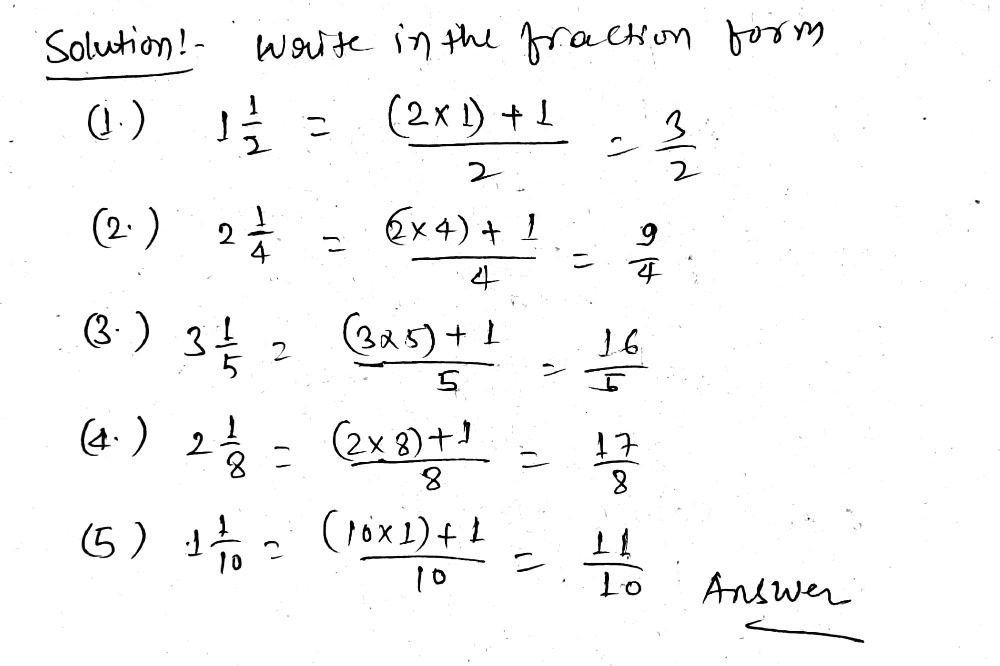 Solution!- Write in the fraction form
(1.) 1 1/2 = (2×1) + 1 / 2 = 3/2
(2.) 2 1/4 = (2×4) + 1 / 4 = 9/4
(3.) 3 1/5 = (3×5) + 1 / 5 = 16/5
(4.) 2 1/8 = (2×8) + 1 / 8 = 17/8
(5) 1 1/10 = (10×1) + 1 / 10 = 11/10 Answer